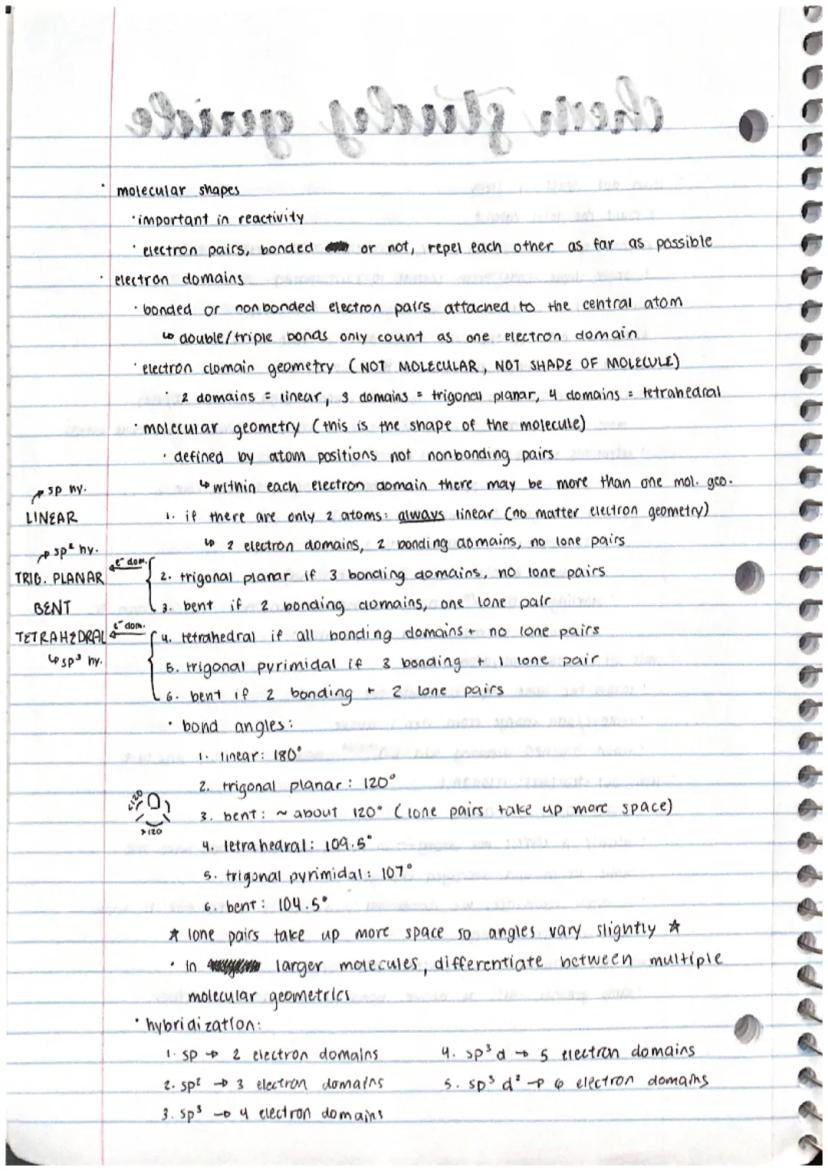 chem study guide
· molecular shapes
· important in reactivity
· electron pairs, bonded or not, repel each other as far as possible
· electron domains
· bonded or nonbonded electron pairs attached to the central atom
↳ double/triple bonds only count as one electron domain
· electron domain geometry (NOT MOLECULAR, NOT SHAPE OF MOLECULE)
· 2 domains = linear, 3 domains = trigonal planar, 4 domains = tetrahedral
· molecular geometry (this is the shape of the molecule)
· defined by atom positions not nonbonding pairs
↳ within each electron domain there may be more than one mol. geo.
sp hy.
LINEAR
1. if there are only 2 atoms: always linear (no matter electron geometry)
↳ 2 electron domains, 2 bonding domains, no lone pairs
sp² hy.
TRIG. PLANAR
e⁻ dom.
2. trigonal planar if 3 bonding domains, no lone pairs
BENT
3. bent if 2 bonding domains, one lone pair
TETRAHEDRAL
e⁻ dom.
4. tetrahedral if all bonding domains + no lone pairs
↳ sp³ hy.
5. trigonal pyrimidal if 3 bonding + 1 lone pair
6. bent if 2 bonding + 2 lone pairs
· bond angles:
1. linear: 180°
2. trigonal planar: 120°
<120
>120
3. bent: ~ about 120° (lone pairs take up more space)
4. tetrahedral: 109.5°
5. trigonal pyrimidal: 107°
6. bent: 104.5°
★ lone pairs take up more space so angles vary slightly ★
· In larger molecules, differentiate between multiple
molecular geometrics
· hybridization:
1. sp → 2 electron domains
4. sp³d → 5 electron domains
2. sp² → 3 electron domains
5. sp³d² → 6 electron domains
3. sp³ → 4 electron domains